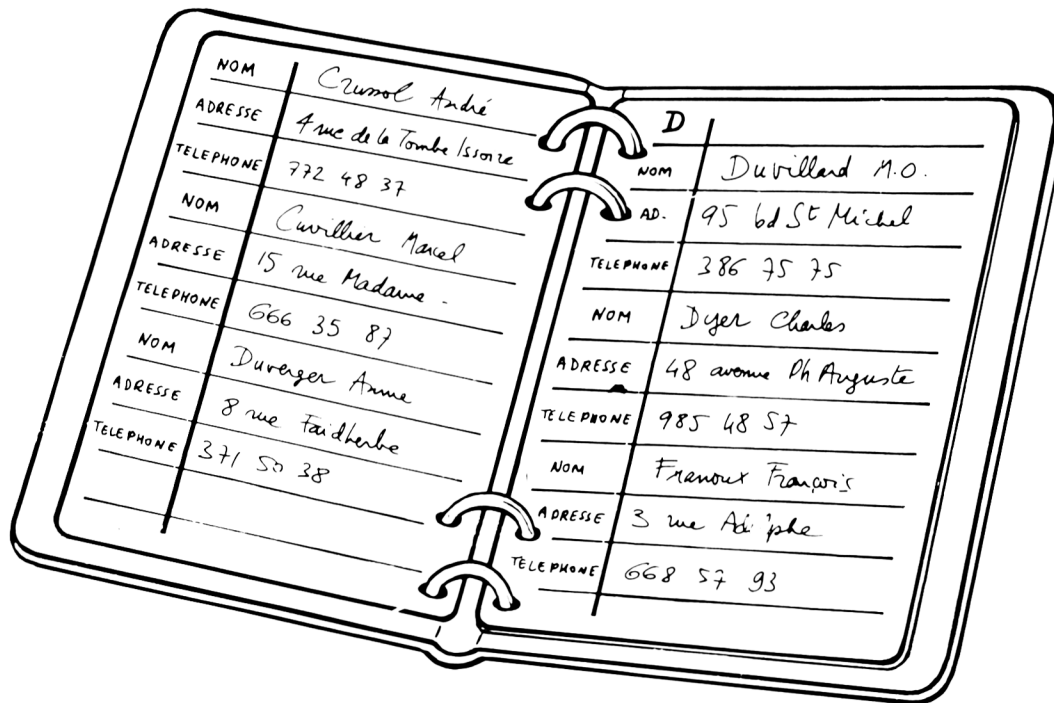 NOM Crussol André
ADRESSE 4 rue de la Tombe Issoire
TELEPHONE 772 48 37
NOM Cuvillier Marcel
ADRESSE 15 rue Madame.
TELEPHONE 666 35 87
NOM Duverger Anne
ADRESSE 8 rue Faidherbe
TELEPHONE 371 50 38
D
NOM Duvillard M.O.
AD. 95 bd St Michel
TELEPHONE 386 75 75
NOM Dyer Charles
ADRESSE 48 avenue Ph Auguste
TELEPHONE 985 48 57
NOM François
ADRESSE 3 rue
TELEPHONE 668 57 93